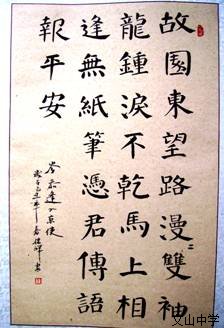 故園東望路漫〻雙袖
龍鍾淚不乾馬上相
逢無紙筆憑君傳語
報平安
岑參逢入京使
文山中学